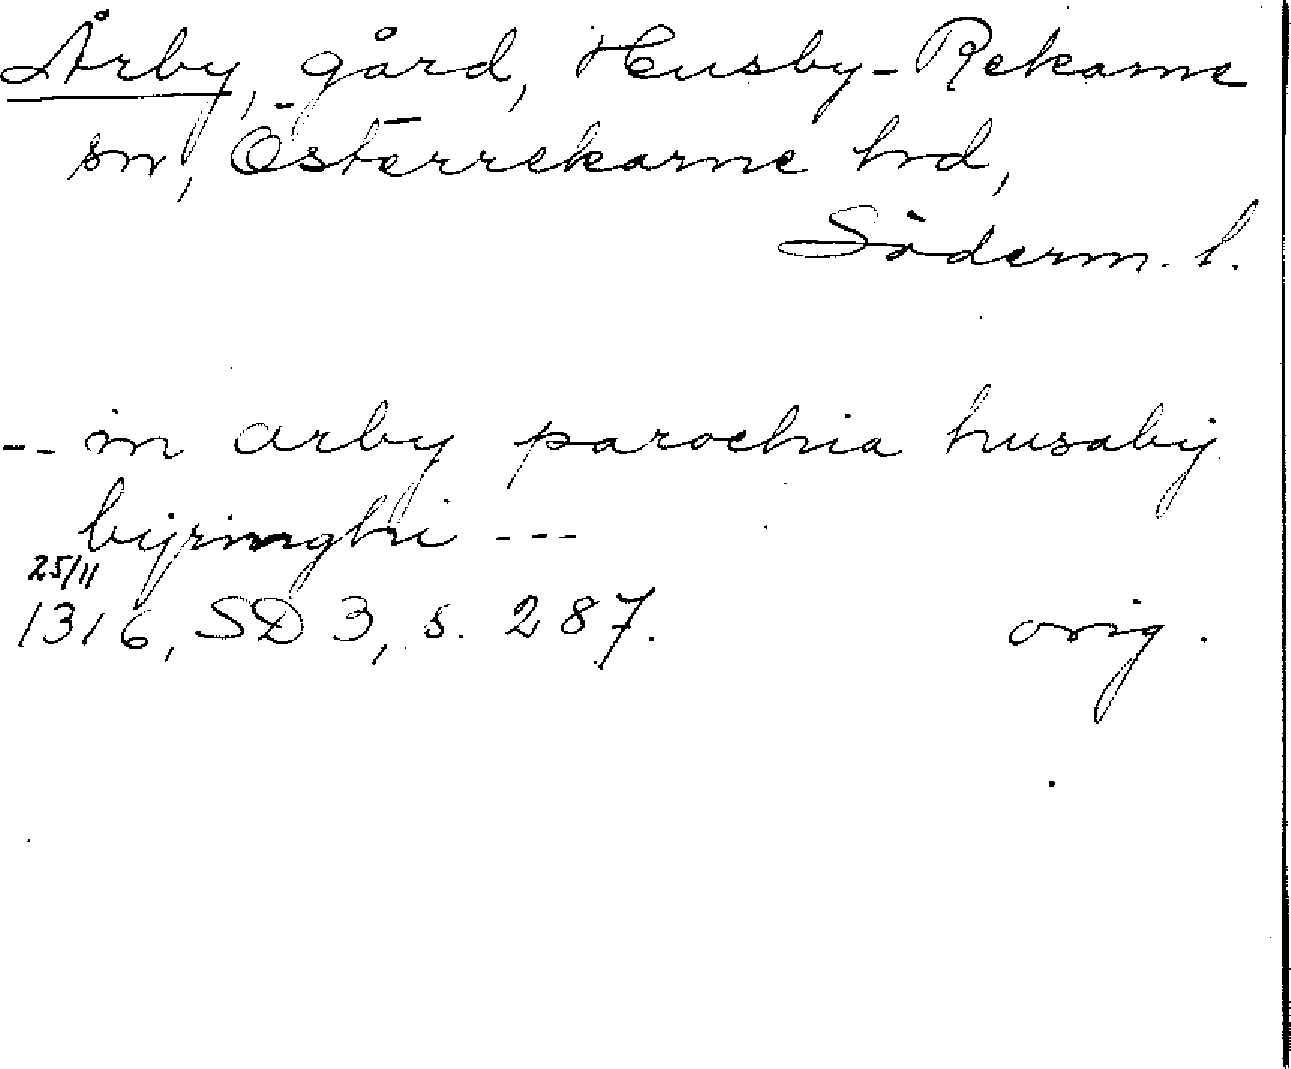 Årby, gård, Husby-Rekarne
sn, Österrekarne hd,
Söderm. l.
-- in arby parochia husaby
byringhi ---
25/11
1316, SD 3, s. 287. orig.